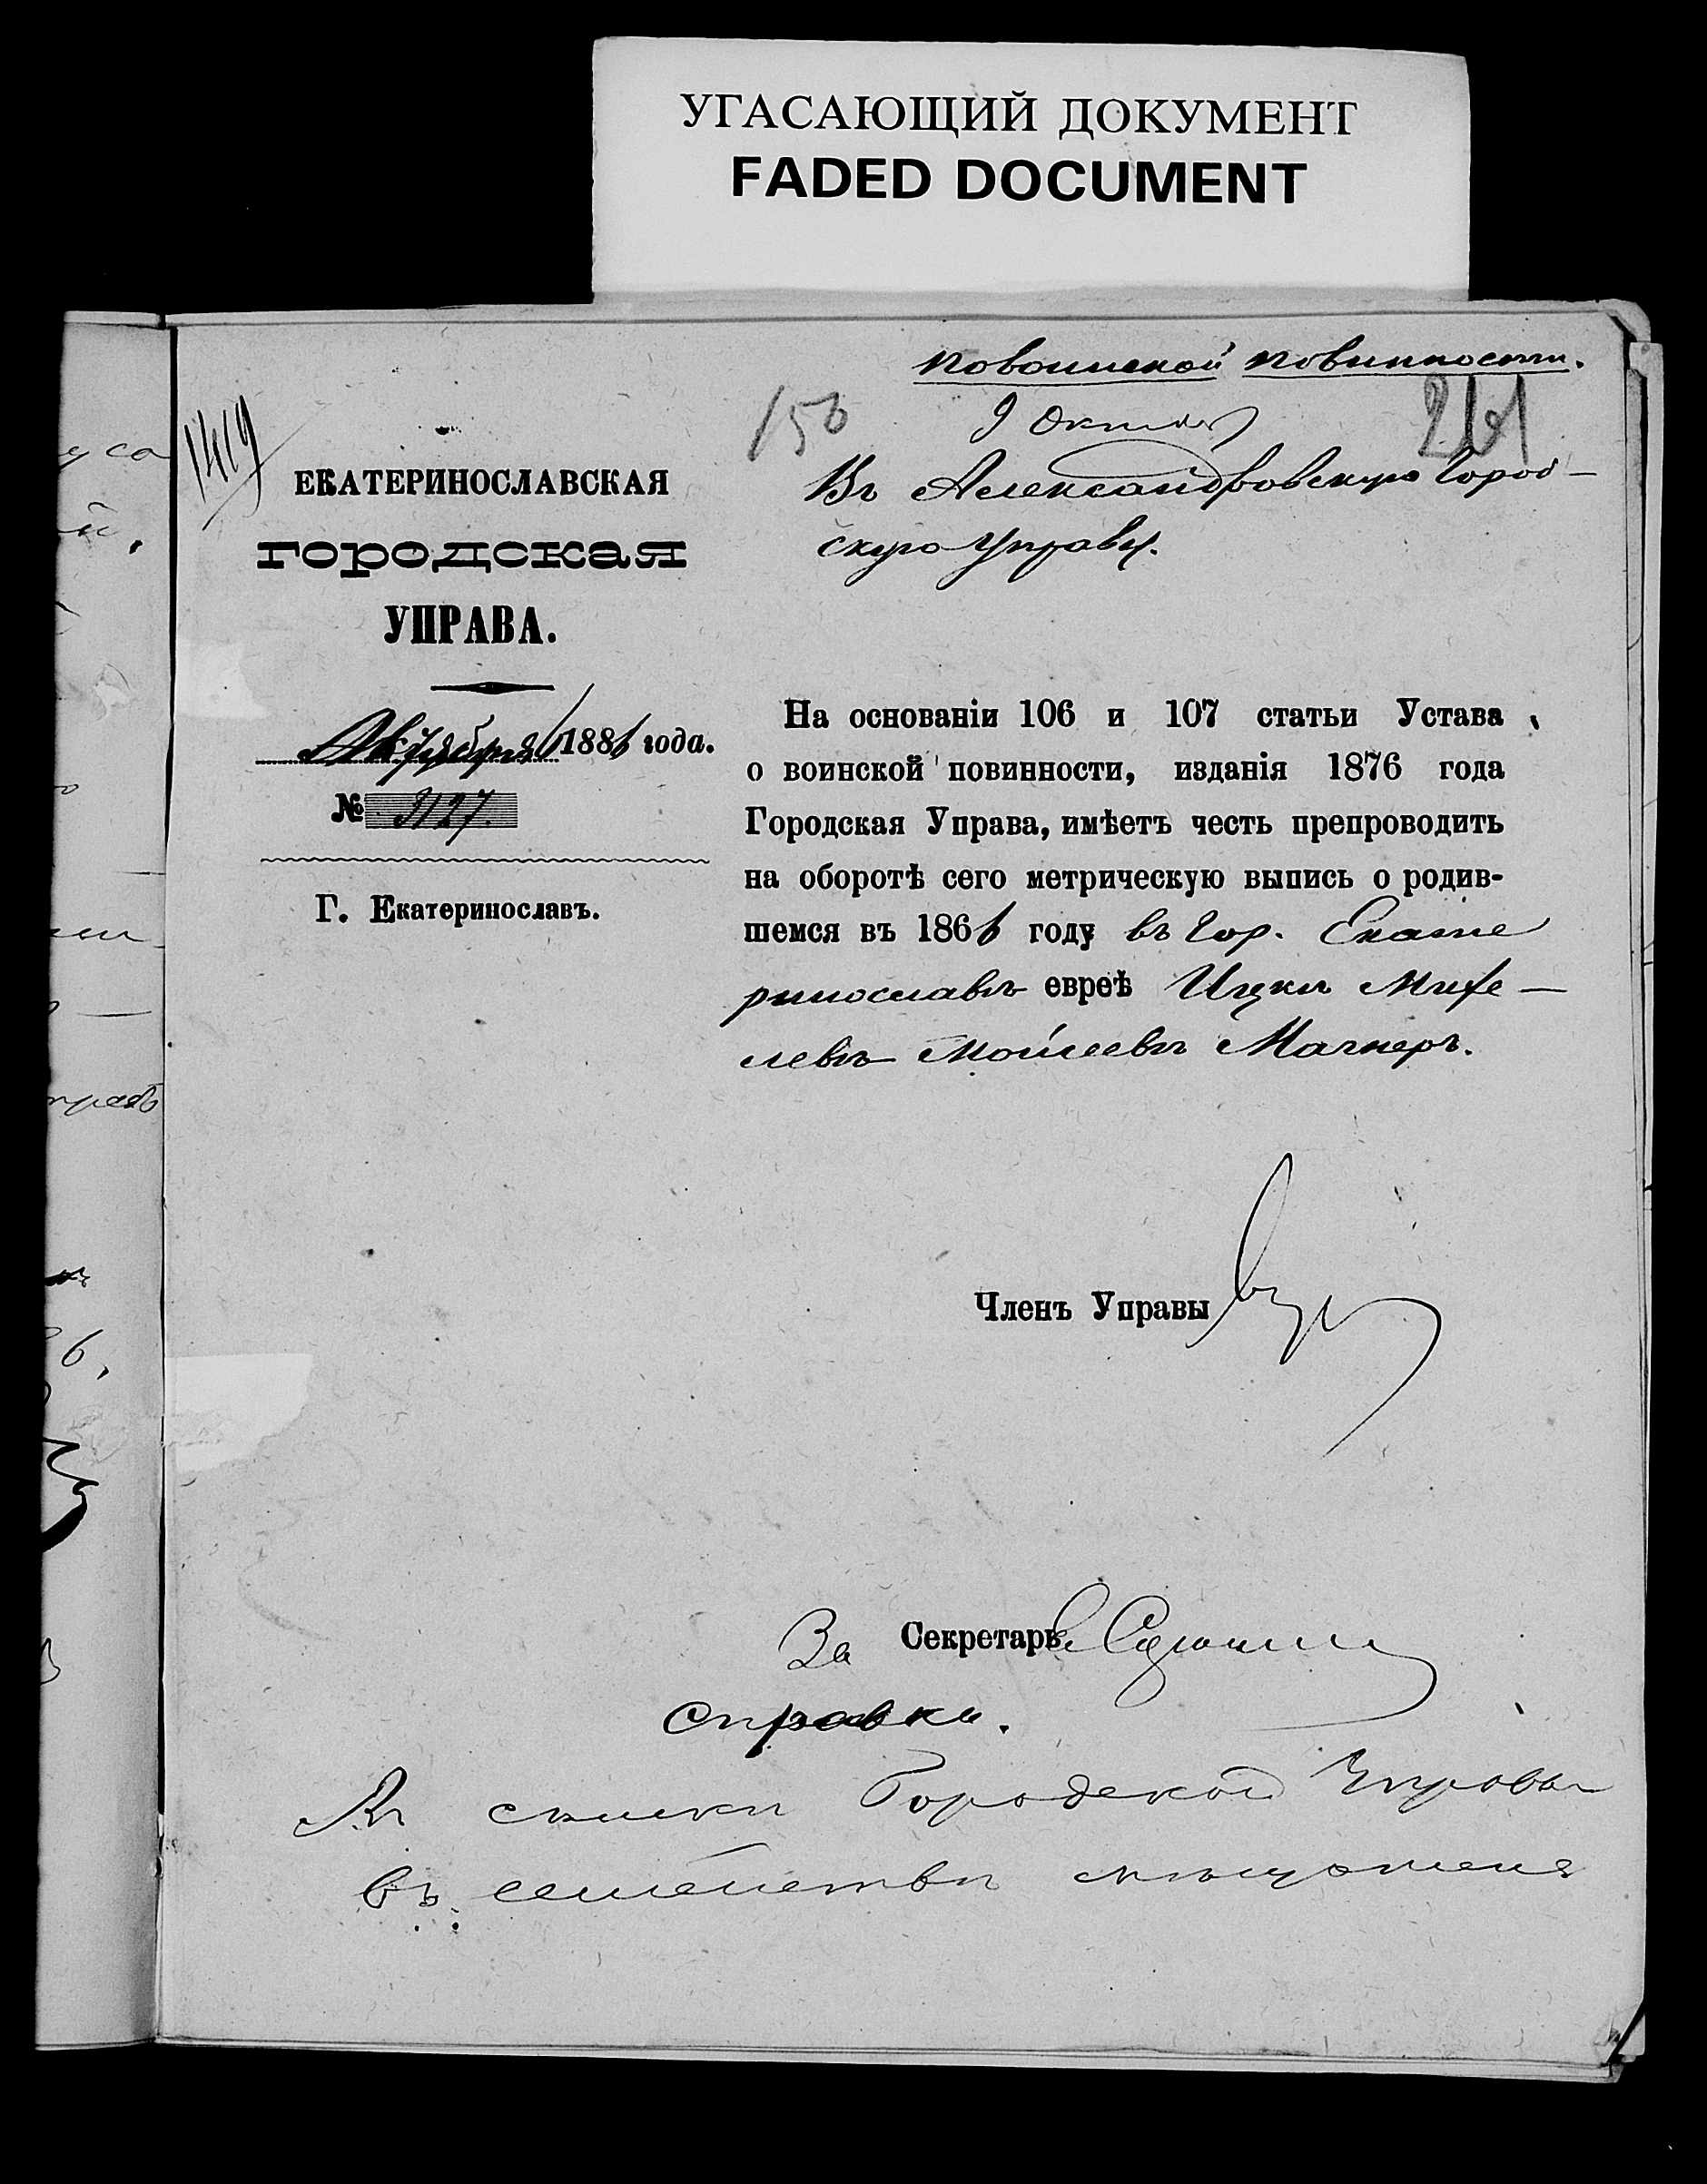 УГАСАЮЩИЙ ДОКУМЕНТ
FADED DOCUMENT
По воинской повинности.
1419
150
9 Октяб
261
ЕКАТЕРИНОСЛАВСКАЯ
ГОРОДСКАЯ
УПРАВА.
Октября 1886 года.
№ 3127.
Г. Екатеринославъ.
Въ Александровскую Город-
скую Управу.
На основаніи 106 и 107 статьи Устава
о воинской повинности, изданія 1876 года
Городская Управа, имѣетъ честь препроводить
на оборотѣ сего метрическую выпись о родив-
шемся въ 1866 году въ гор. Екате
ринославѣ евреѣ Ицкѣ Михе-
левѣ Мойсеевѣ Магнеръ.
Членъ Управы
За Секретарь
Справка.
Въ списки Городской Управы
въ семействѣ мѣщанина